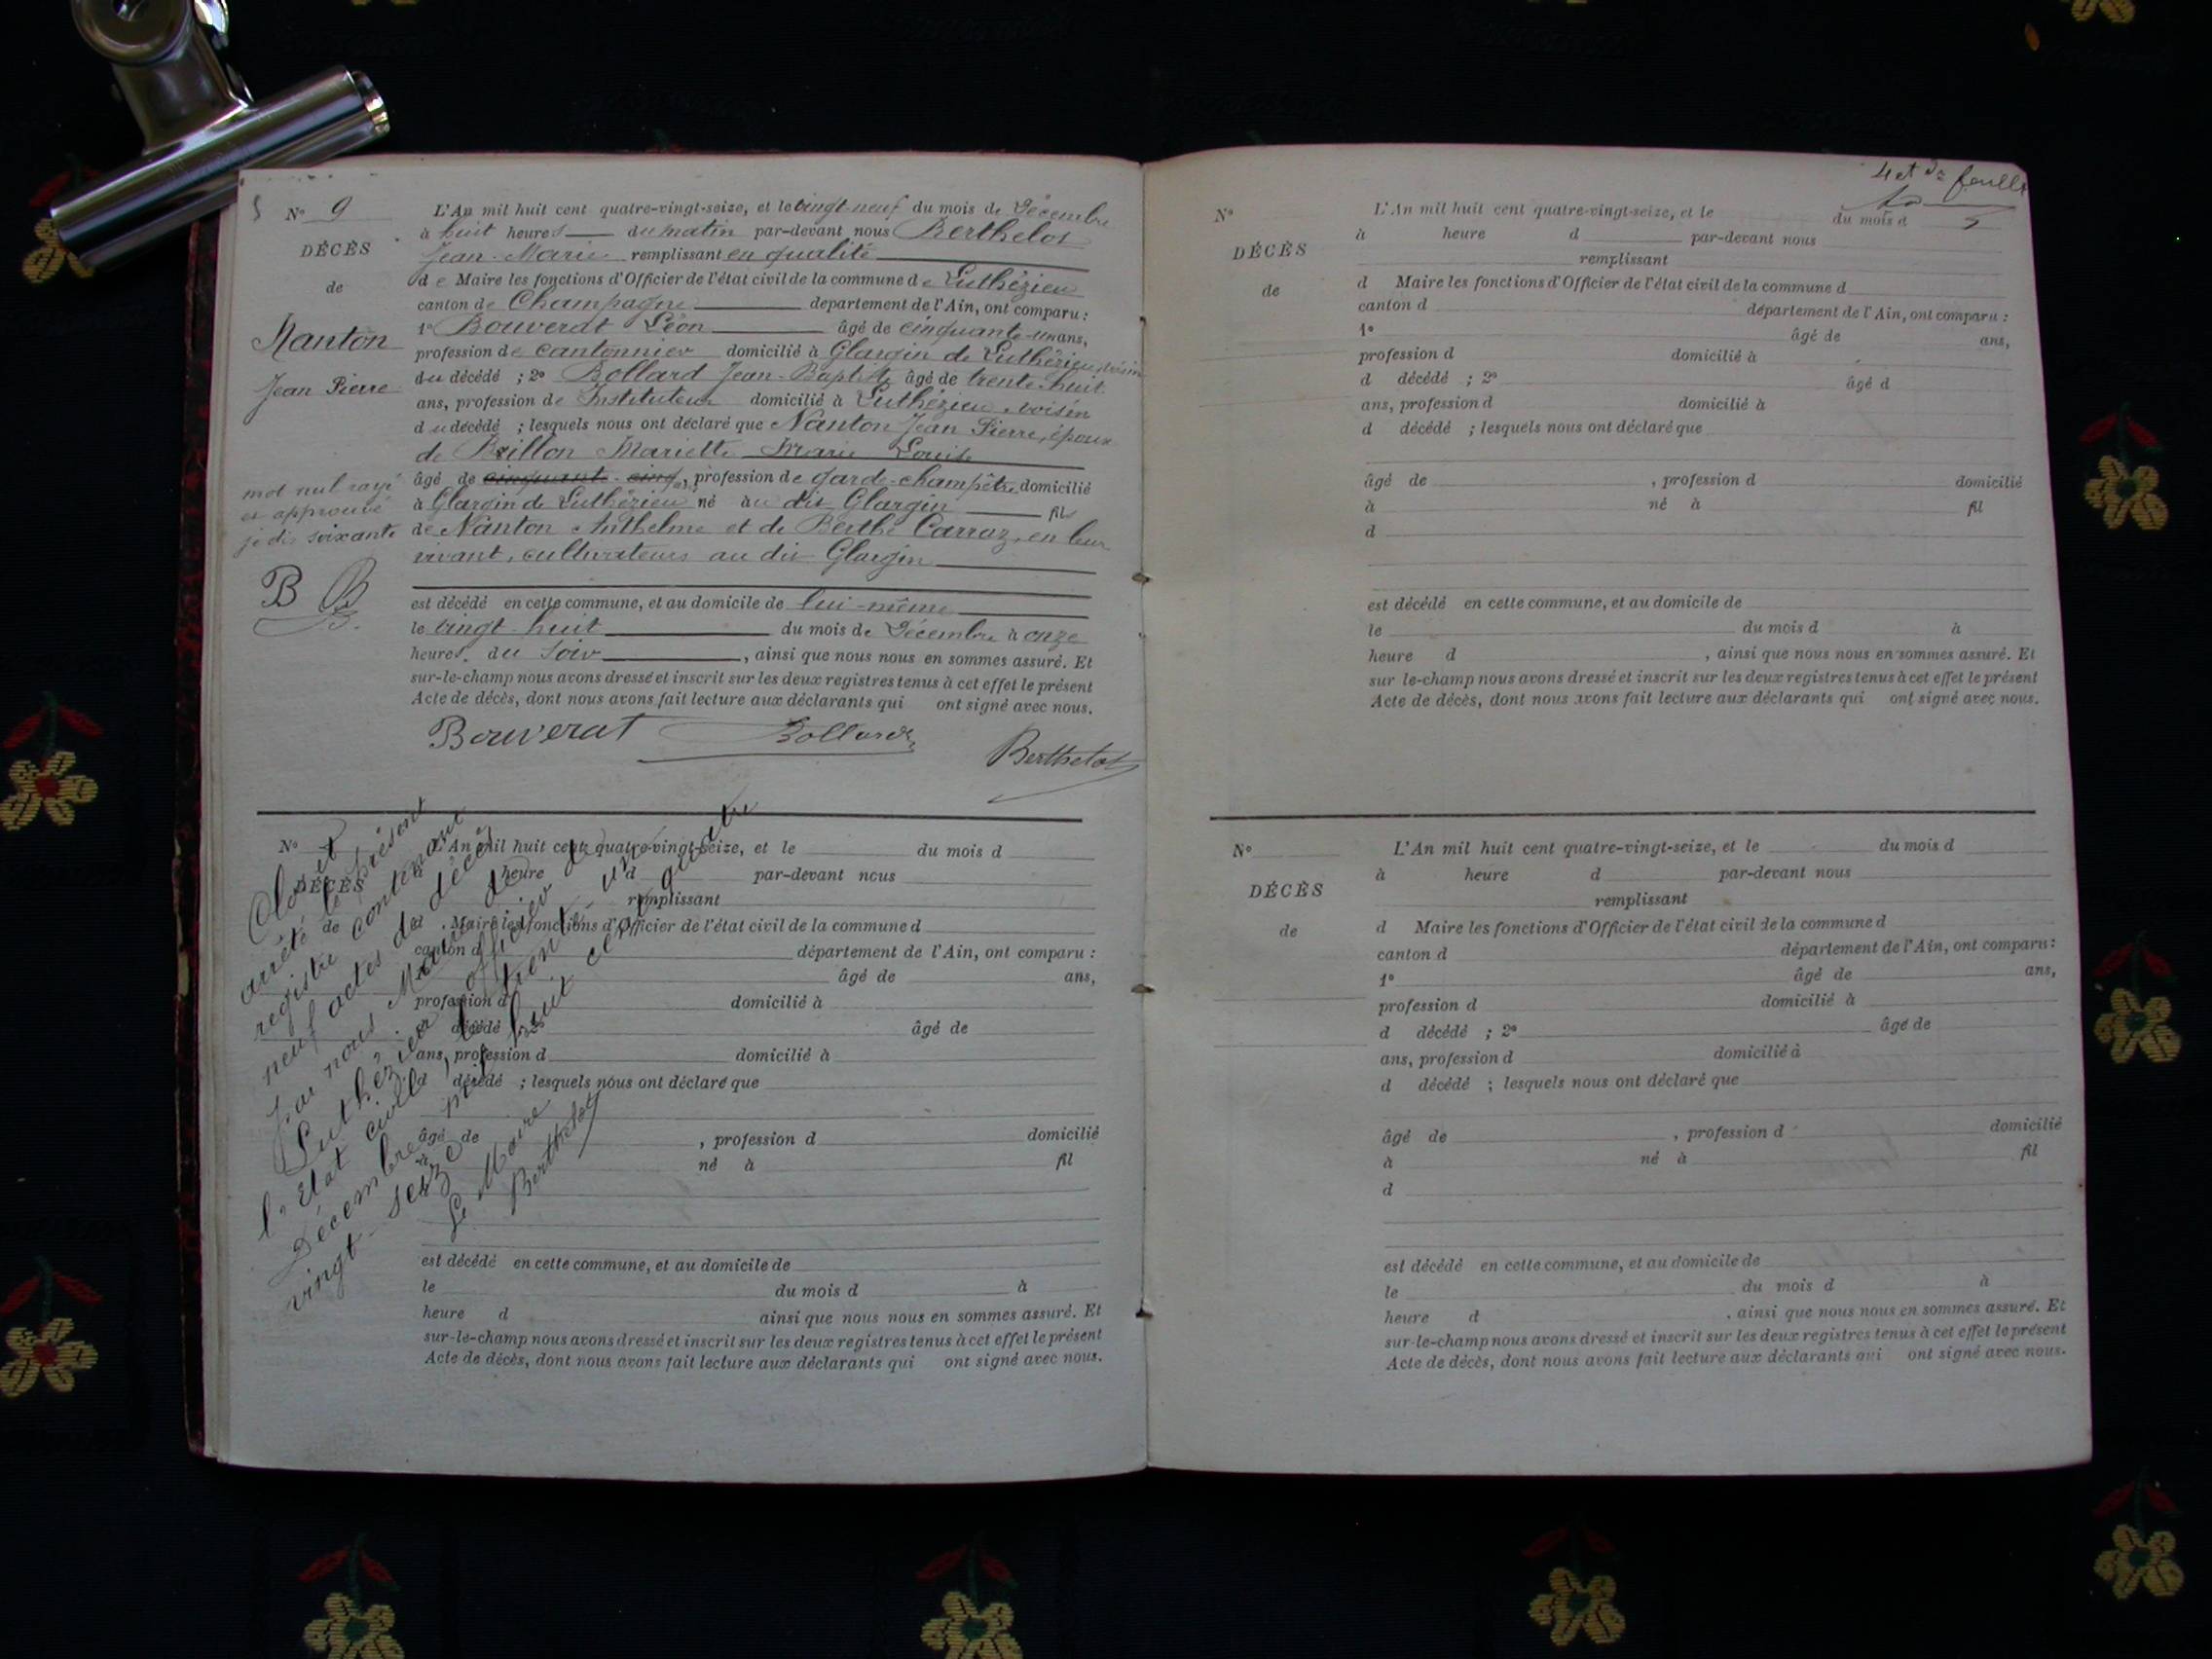 N° 9
DÉCÈS
de
Nanton
Jean Pierre
mot nul rayé
et approuvé
je dis soixante
B B
L'An mil huit cent quatre-vingt-seize, et le vingt-neuf du mois de Décembre
à huit heures du matin par-devant nous Berthelot
Jean-Marie remplissant en qualité
de Maire les fonctions d'Officier de l'état civil de la commune de Luthézieu
canton de Champagne département de l'Ain, ont comparu :
1° Bouverat Léon âgé de cinquante-un ans,
profession de cantonnier domicilié à Glargin de Luthézieu, voisin
du décédé ; 2° Bollard Jean-Baptiste âgé de trente-huit
ans, profession de Instituteur domicilié à Luthézieu voisin
du décédé ; lesquels nous ont déclaré que Nanton Jean Pierre, époux
de Brillon Mariette Marie Louise
âgé de cinquante-cinq, profession de garde-champêtre domicilié
à Glargin de Luthézieu né au dit Glargin fils
de Nanton Anthelme et de Berthe Carraz, en leur
vivant, cultivateurs au dit Glargin
est décédé en cette commune, et au domicile de lui-même
le vingt-huit du mois de Décembre à onze
heures du soir, ainsi que nous nous en sommes assuré. Et
sur-le-champ nous avons dressé et inscrit sur les deux registres tenus à cet effet le présent
Acte de décès, dont nous avons fait lecture aux déclarants qui ont signé avec nous.
Bouverat Bollard
Berthelot
N°
DÉCÈS
de
L'An mil huit cent quatre-vingt-seize, et le du mois d
à heure d par-devant nous
remplissant
d Maire les fonctions d'Officier de l'état civil de la commune d
canton d département de l'Ain, ont comparu :
1° âgé de ans,
profession d domicilié à
d décédé ; 2° âgé de
ans, profession d domicilié à
d décédé ; lesquels nous ont déclaré que
âgé de , profession d domicilié
à né à fil
d
est décédé en cette commune, et au domicile de
le du mois d à
heure d ainsi que nous nous en sommes assuré. Et
sur-le-champ nous avons dressé et inscrit sur les deux registres tenus à cet effet le présent
Acte de décès, dont nous avons fait lecture aux déclarants qui ont signé avec nous.
Clos et
arrêté le présent
registre contenant
neuf actes de décès
par nous Maire de
Luthézieu officier de
l'Etat civil, le trente-un
Décembre mil huit cent quatre
vingt-seize
Le Maire
Berthelot
4 et feuille
N°
DÉCÈS
de
L'An mil huit cent quatre-vingt-seize, et le du mois d
à heure d par-devant nous
remplissant
d Maire les fonctions d'Officier de l'état civil de la commune d
canton d département de l'Ain, ont comparu :
1° âgé de ans,
profession d domicilié à
d décédé ; 2° âgé d
ans, profession d domicilié à
d décédé ; lesquels nous ont déclaré que
âgé de , profession d domicilié
à né à fil
d
est décédé en cette commune, et au domicile de
le du mois d à
heure d , ainsi que nous nous en sommes assuré. Et
sur le-champ nous avons dressé et inscrit sur les deux registres tenus à cet effet le présent
Acte de décès, dont nous avons fait lecture aux déclarants qui ont signé avec nous.
N°
DÉCÈS
de
L'An mil huit cent quatre-vingt-seize, et le du mois d
à heure d par-devant nous
remplissant
d Maire les fonctions d'Officier de l'état civil de la commune d
canton d département de l'Ain, ont comparu :
1° âgé de ans,
profession d domicilié à
d décédé ; 2° âgé de
ans, profession d domicilié à
d décédé ; lesquels nous ont déclaré que
âgé de , profession d domicilié
à né à fil
d
est décédé en cette commune, et au domicile de
le du mois d à
heure d , ainsi que nous nous en sommes assuré. Et
sur-le-champ nous avons dressé et inscrit sur les deux registres tenus à cet effet le présent
Acte de décès, dont nous avons fait lecture aux déclarants qui ont signé avec nous.